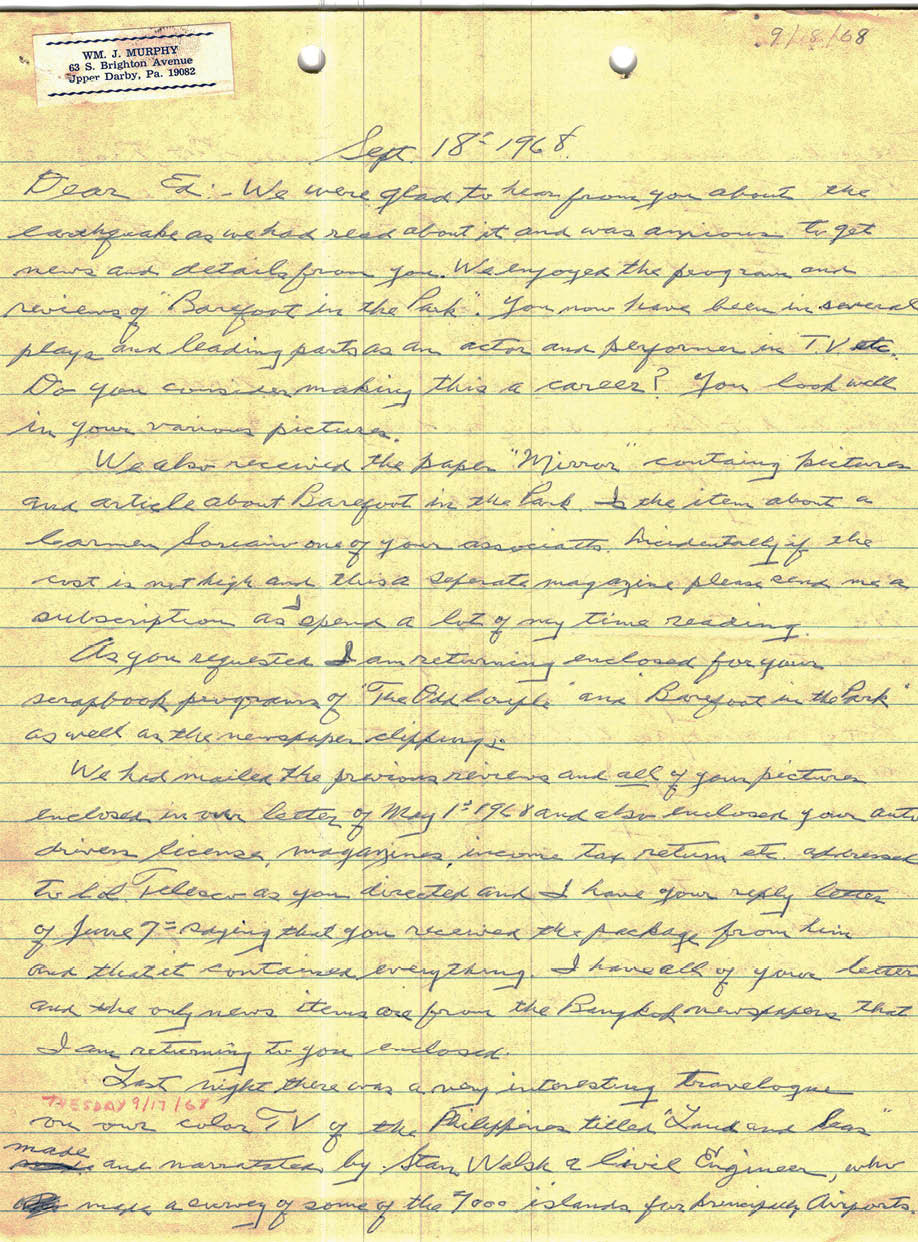 WM. J. MURPHY
63 S. Brighton Avenue
Upper Darby, Pa. 19082
9/18/68
Sept. 18th 1968.
Dear Ed:- We were glad to hear from you about the
earthquake as we had read about it and was anxious to get
news and details from you. We enjoyed the program and
reviews of "Barefoot in the Park". You now have been in several
plays and leading parts as an actor and performer in T.V etc.
Do you consider making this a career? You look well
in your various pictures.
We also received the paper "Mirror" containg pictures
and article about Barefoot in the Park. the item about a
Carmen one of your associatts. Incidentally if the
cost is not high and this a seperate magazine please send me a
subscription as I spend a lot of my time reading.
As you requested I am returning enclosed for your
scrapbook programs of "The Odd Couple" and "Barefoot in the Park"
as well as the newspaper clippings.
We had mailed the previous reviews and all of your pictures
enclosed in our letter of May 1st 1968 and also enclosed your auto
drivers license, magazines, income tax return etc. addressed
to Telesco as you directed and I have your reply letter
of June 7th saying that you received the package from him
and that it contained everything. I have all of your letter
and the only news items are from the Bangkok newspapers that
I am returning to you enclosed.
Last night there was a very interesting travelogue
TUESDAY 9/17/68
on our color TV of the Philippines titled "Land and Seas"
made and narrated by Stan Walsh a Civil Engineer, who
made a survey of some of the 7000 islands for principally Airports.